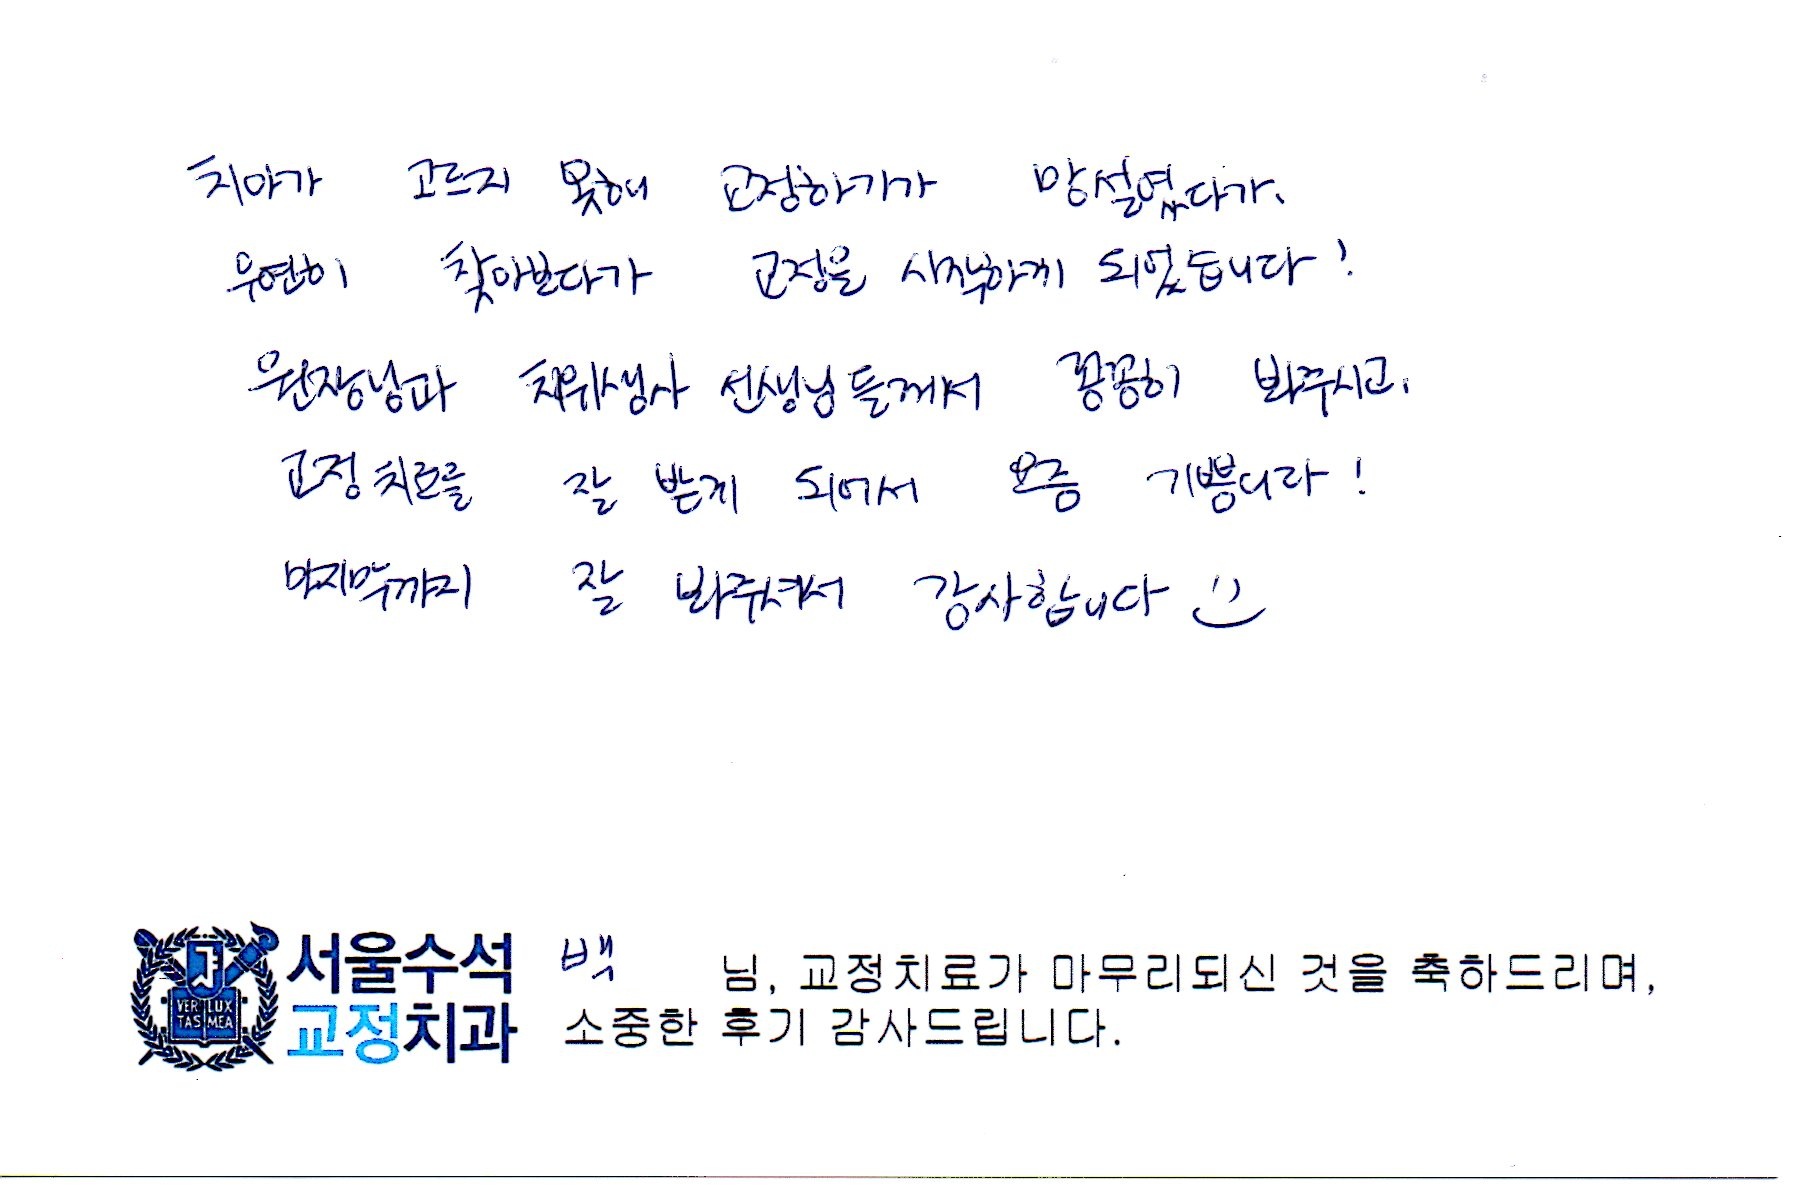 치아가 고르지 못해 교정하기가 망설였다가,
우연히 찾아보다가 교정을 시작하게 되었습니다!
원장님과 치위생사 선생님들께서 꼼꼼히 봐주시고,
교정치료를 잘 받게 되어서 요즘 기쁩니다!
마지막까지 잘 봐주셔서 감사합니다
VERI LUX
TAS MEA
서울수석
교정치과
백 님, 교정치료가 마무리되신 것을 축하드리며,
소중한 후기 감사드립니다.